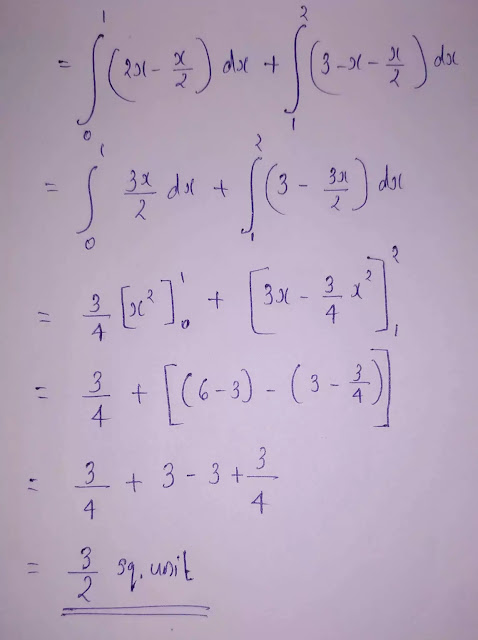 = ∫₀¹ (2x - x/2) dx + ∫₁² (3 - x - x/2) dx
= ∫₀¹ 3x/2 dx + ∫₁² (3 - 3x/2) dx
= 3/4 [x²]₀¹ + [3x - 3/4 x²]₁²
= 3/4 + [(6-3) - (3 - 3/4)]
= 3/4 + 3 - 3 + 3/4
= 3/2 sq. unit